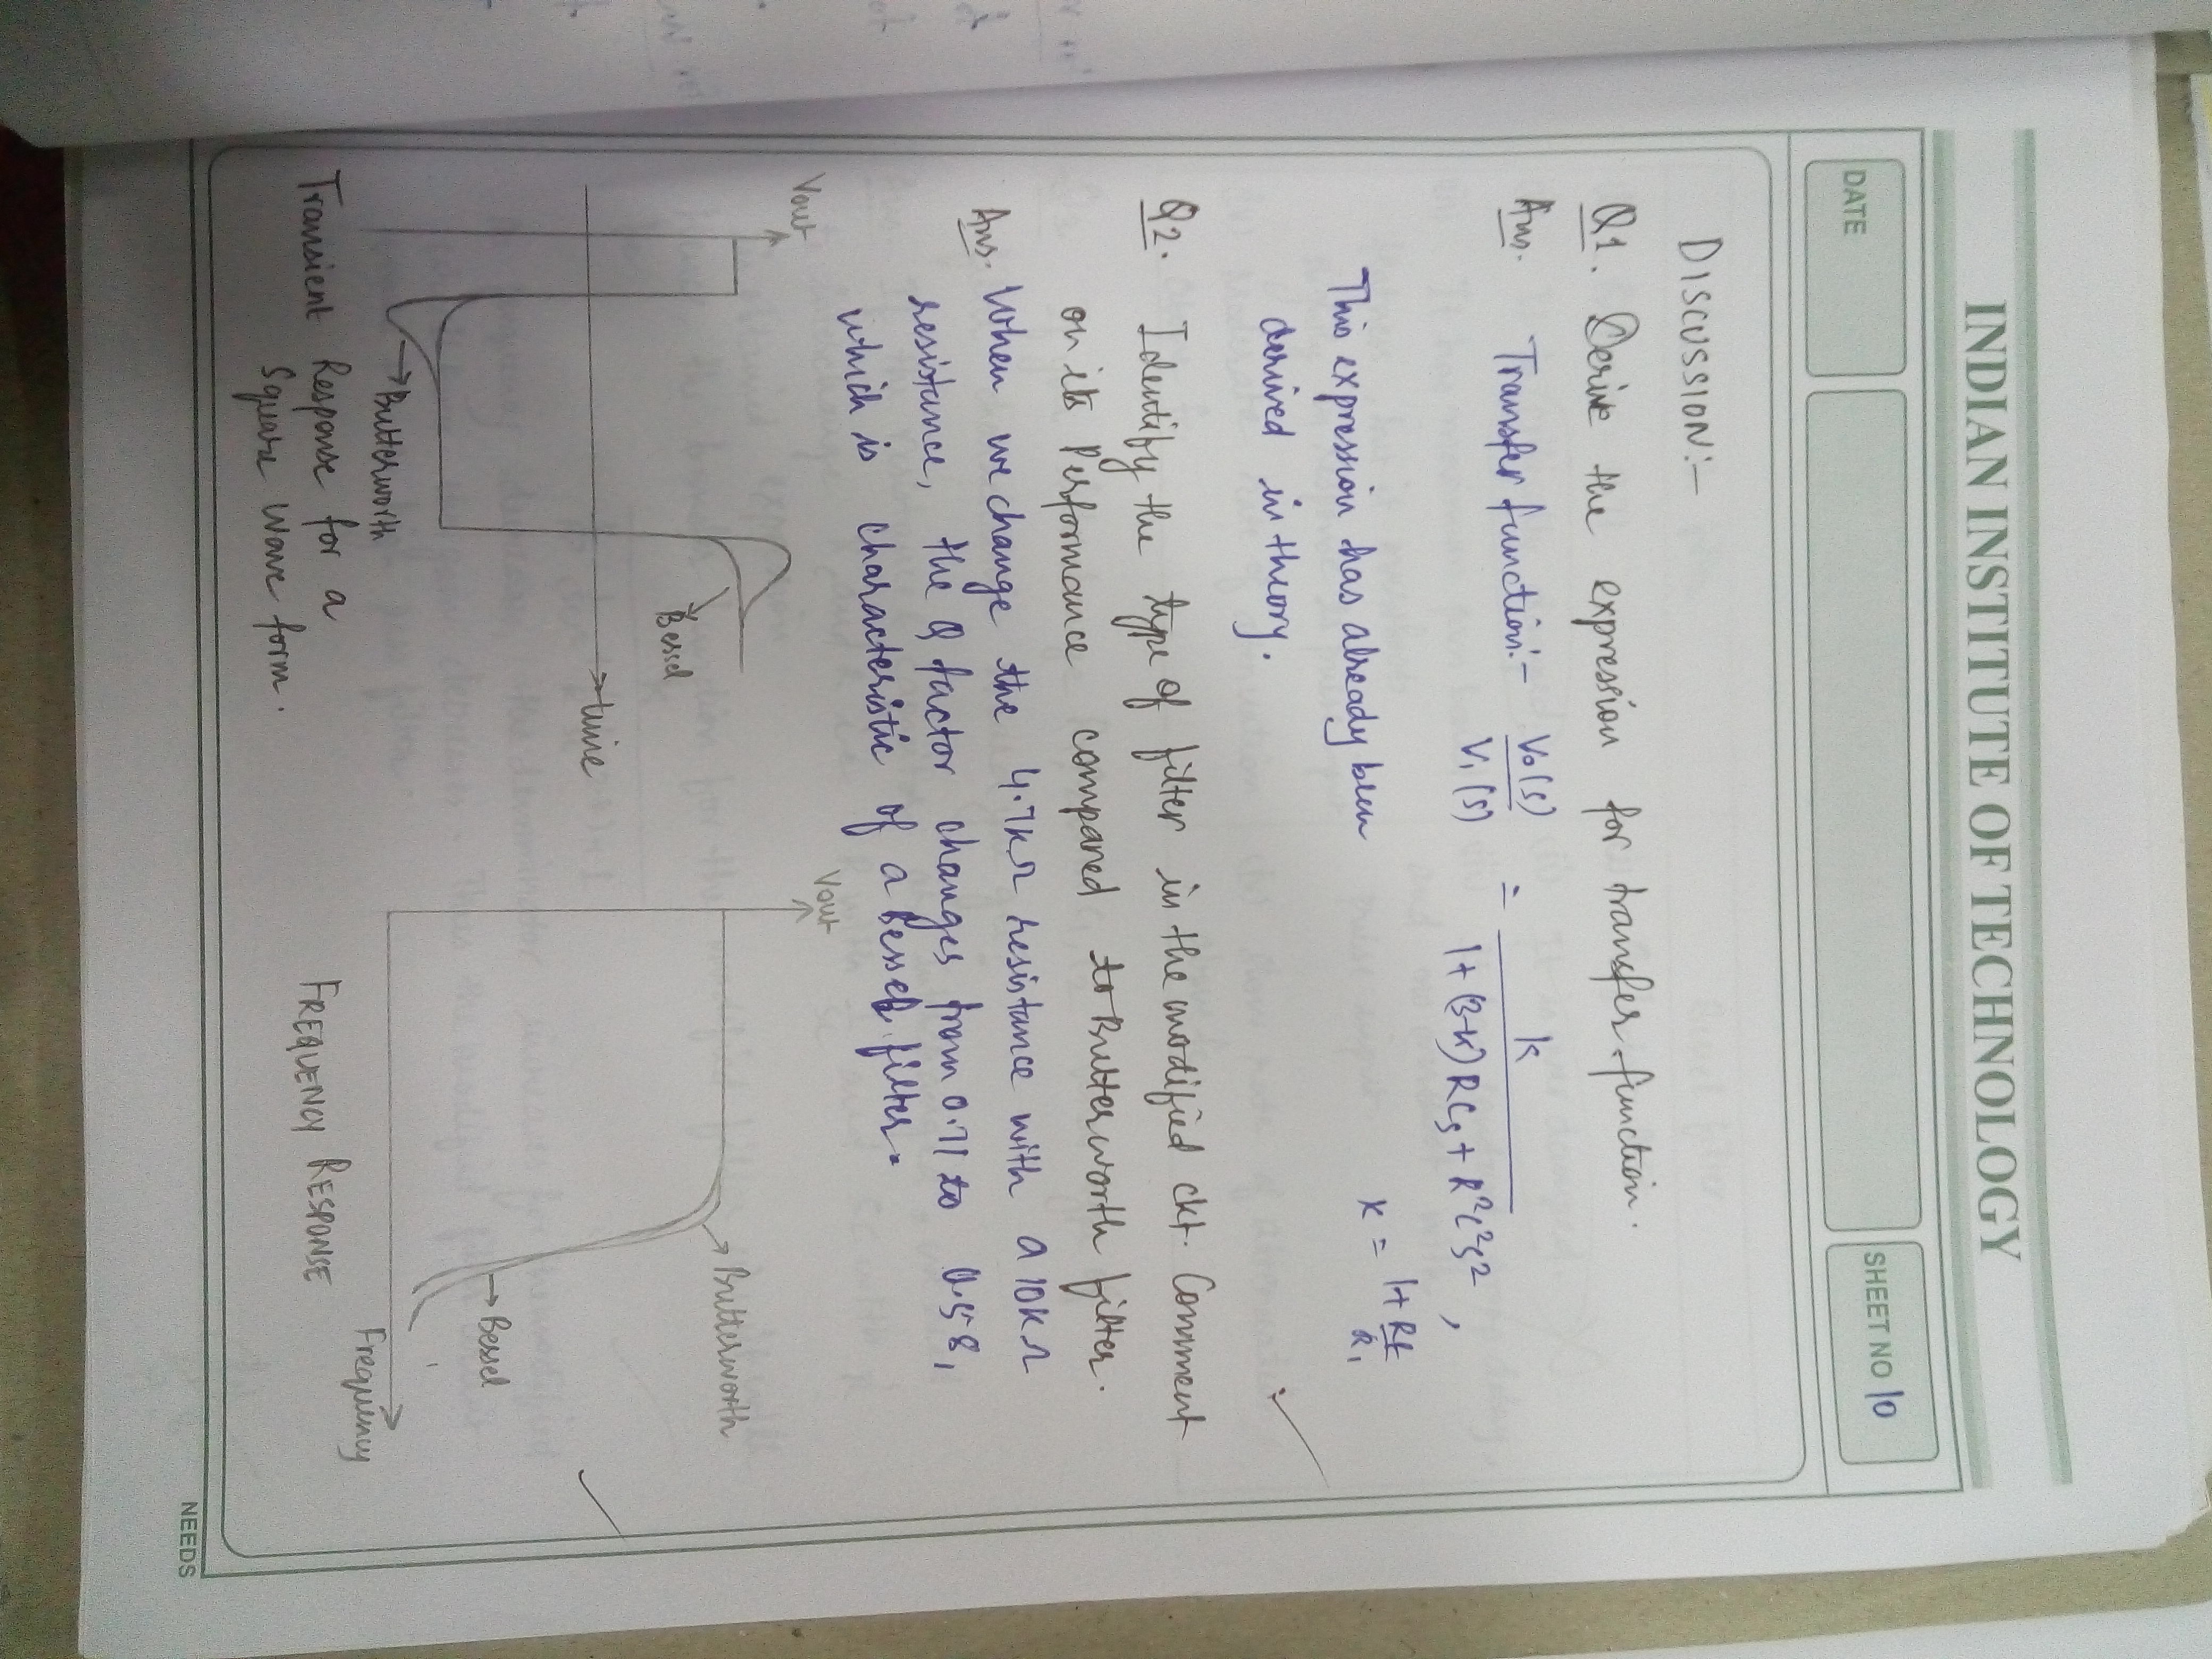 INDIAN INSTITUTE OF TECHNOLOGY
DATE
SHEET NO 10
DISCUSSION:-
Q1. Derive the expression for transfer function.
Ans. Transfer function:- Vo(s)/V1(s) = K/(1+(3-K)RCs+R²C²s²),
K = 1+Rf/R1
This expression has already been
derived in theory.
Q2. Identify the type of filter in the modified ckt. Comment
on its Performance compared to Butterworth filter.
Ans. When we change the 4.7kΩ resistance with a 10kΩ
resistance, the Q factor changes from 0.71 to 0.58,
which is characteristic of a Bessel filter.
Vout
Bessel
time
Butterworth
Transient Response for a
Square wave form.
Vout
Butterworth
Bessel
Frequency
FREQUENCY RESPONSE
NEEDS